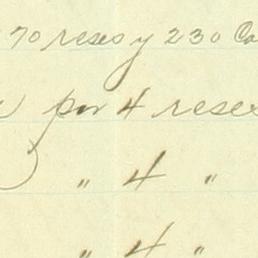 70 reses y 230 Ca
por 4 reses
" 4 "
" 4 "